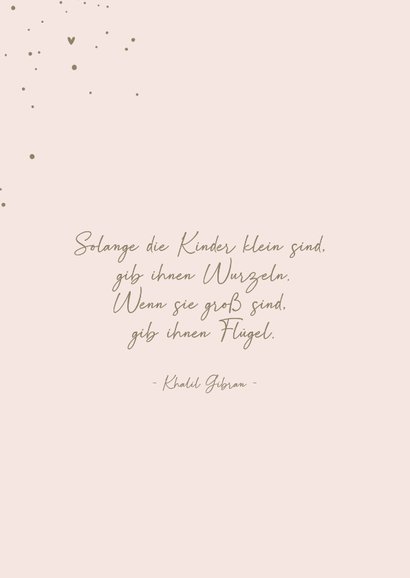 Solange die Kinder klein sind,
gib ihnen Wurzeln.
Wenn sie groß sind,
gib ihnen Flügel.
- Khalil Gibran -